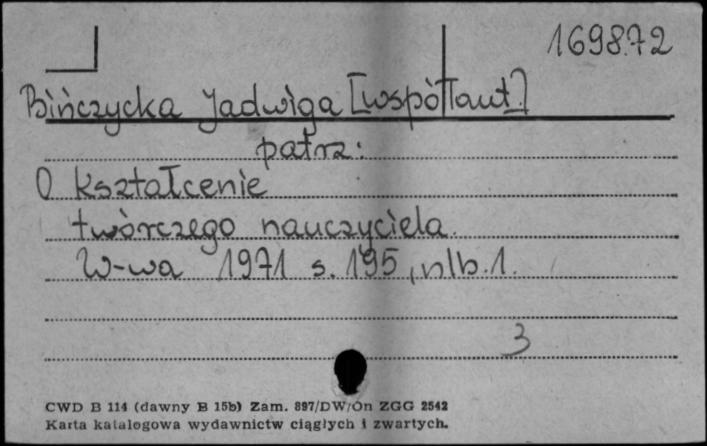 169872
Bińczycka Jadwiga [współaut.]
patrz:
O kształcenie
twórczego nauczyciela.
W-wa 1971 s. 195, nlb. 1.
3
CWD B 114 (dawny B 15b) Zam. 897/DW/On ZGG 2542
Karta katalogowa wydawnictw ciągłych i zwartych.